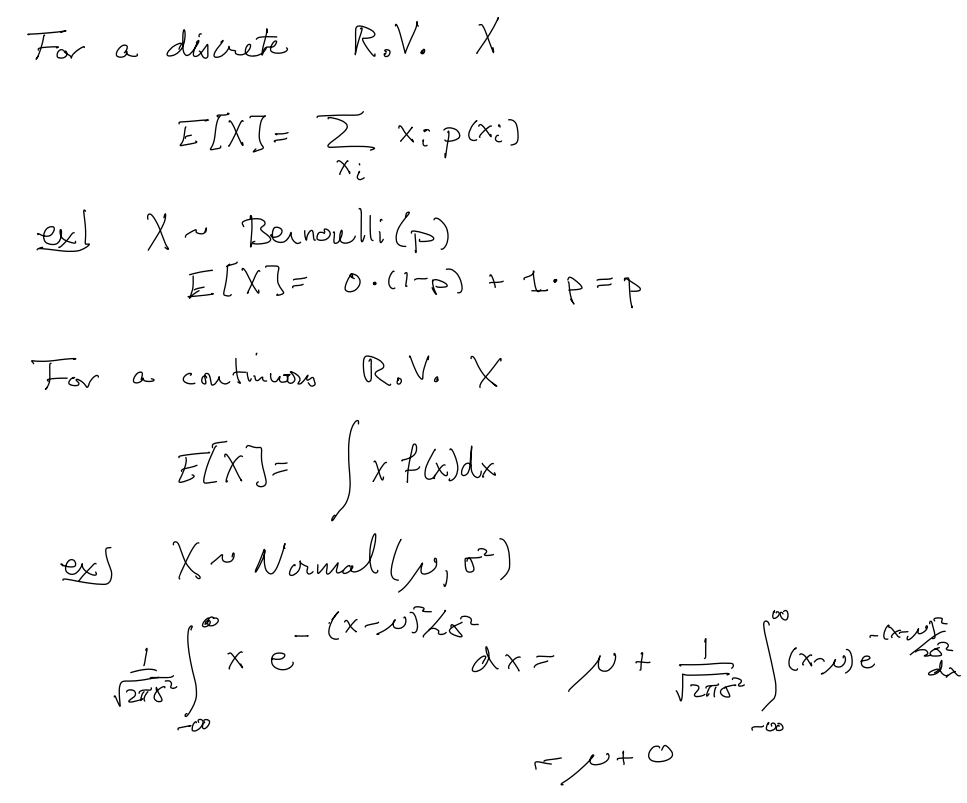 For a discrete R.V. X
E[X] = ∑_{x_i} x_i p(x_i)
ex] X ~ Bernoulli(p)
E[X] = 0·(1-p) + 1·p = p
For a continuous R.V. X
E[X] = ∫ x f(x)dx
ex] X ~ Normal(μ, σ²)
1/√(2πσ²) ∫_{-∞}^{∞} x e^{-(x-μ)²/2σ²} dx = μ + 1/√(2πσ²) ∫_{-∞}^{∞} (x-μ) e^{-(x-μ)²/2σ²} dx
= μ + 0